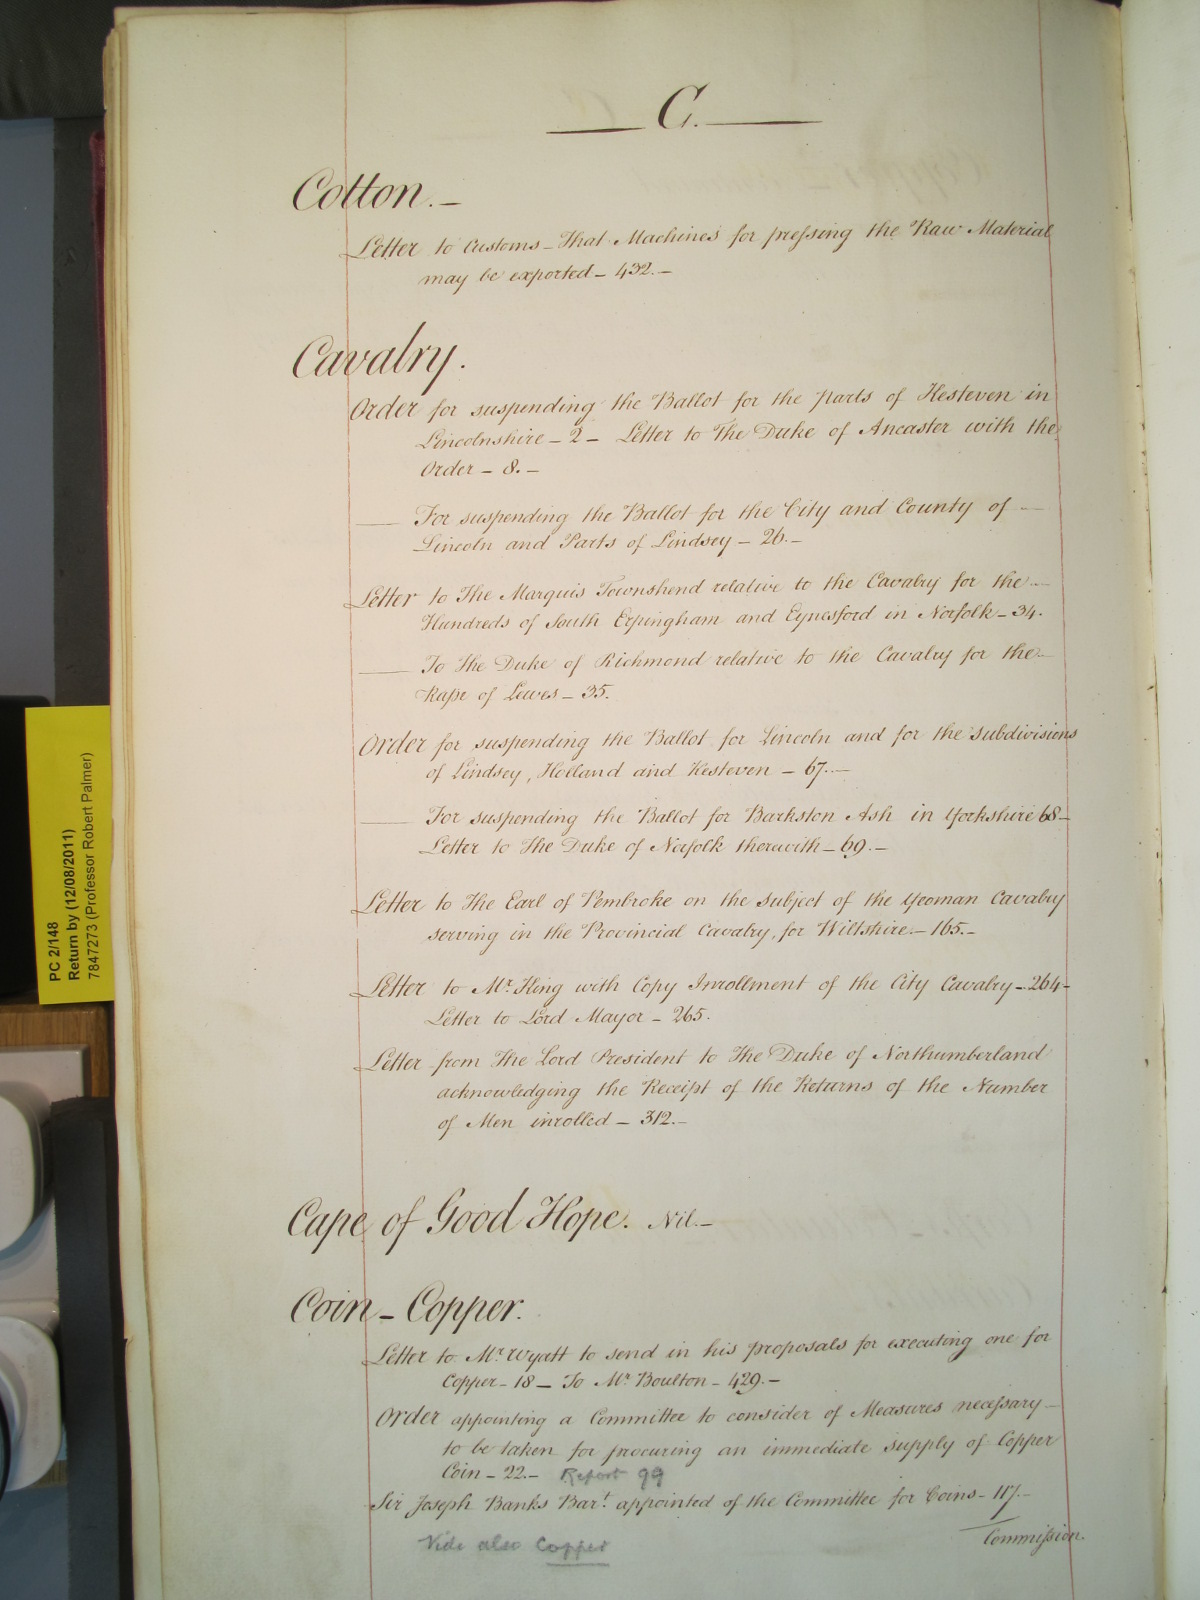 C.
Cotton.—
Letter to Customs – That Machines for pressing the Raw Material
may be exported – 432.—
Cavalry.
Order for suspending the Ballot for the parts of Kesteven in
Lincolnshire – 2 – Letter to The Duke of Ancaster with the
Order – 8.–
—— For suspending the Ballot for the City and County of —
Lincoln and Parts of Lindsey – 26.–
Letter to The Marquis Townshend relative to the Cavalry for the —
Hundreds of South Erpingham and Eynesford in Norfolk – 34.
—— To The Duke of Richmond relative to the Cavalry for the —
Rape of Lewes – 35.
Order for suspending the Ballot for Lincoln and for the subdivisions
of Lindsey, Holland and Kesteven – 67.—
—— For suspending the Ballot for Barkston Ash in Yorkshire 68–
Letter to The Duke of Norfolk therewith – 69.–
Letter to The Earl of Pembroke on the subject of the Yeoman Cavalry
serving in the Provincial Cavalry, for Wiltshire – 165.–
Letter to Mr. King with Copy Inrollment of the City Cavalry – 264–
Letter to Lord Mayor – 265.
Letter from The Lord President to The Duke of Northumberland
acknowledging the Receipt of the Returns of the Number
of Men inrolled – 312.–
Cape of Good Hope. Nil.–
Coin – Copper.
Letter to Mr. Wyatt to send in his proposals for executing one for
Copper – 18 – To Mr. Boulton – 429.–
Order appointing a Committee to consider of Measures necessary –
to be taken for procuring an immediate supply of Copper
Coin – 22.– Report 99
Sir Joseph Banks Bart. appointed of the Committee for Coins – 117.–
Commission
Vide also Copper
PC 2/148
Return by (12/08/2011)
7847273 (Professor Robert Palmer)